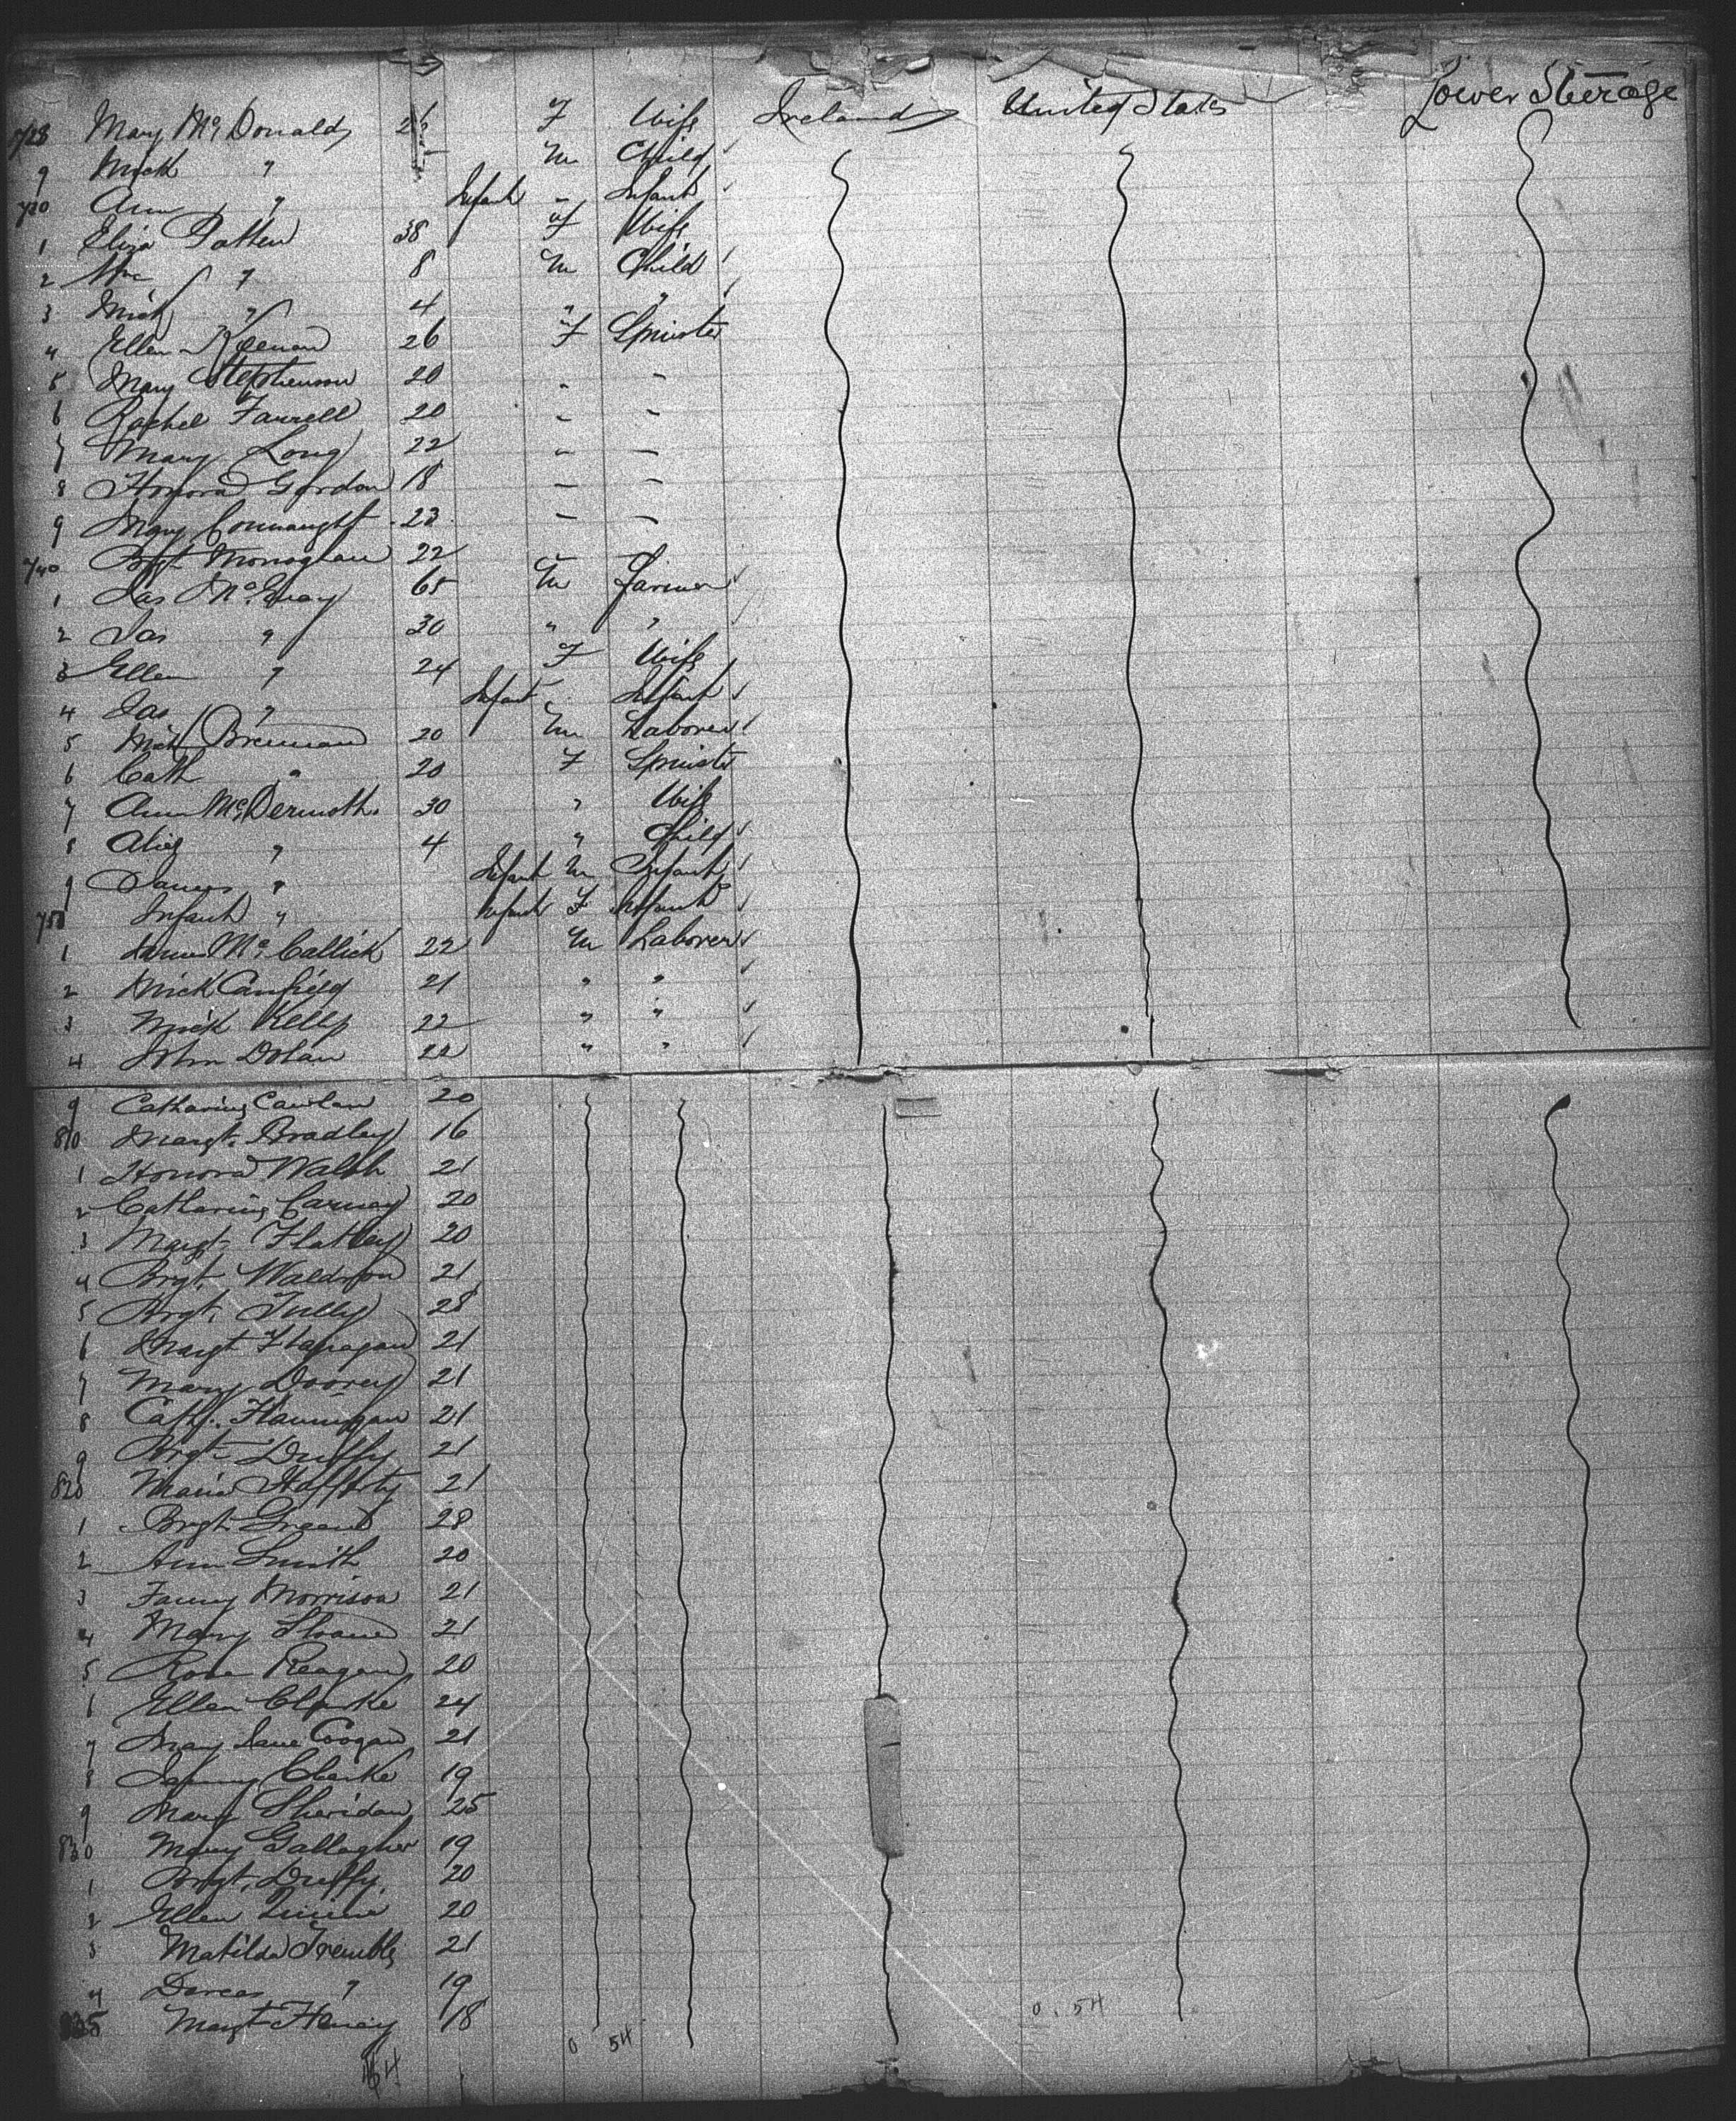 Lower Steerage
728 Mary McDonald 26 F Wife Ireland United States
9 Mick " M Child
730 Ann " Infant " Infant
1 Eliza Patten 38 F Wife
2 Wm " 8 M Child
3 Mick " 4 " "
4 Ellen Keenan 26 F Spinster
5 Mary Stephenson 20 " "
6 Rachel Farrell 20 " "
7 Mary Long 22 " "
8 Honora Gordon 18 " "
9 Mary Connaught 23 " "
740 Brgt Monaghan 22
1 Jas 65 M Farmer
2 Jas " 30 " "
3 Ellen " 24 F Wife
4 Jas " Infant Infant
5 Mick Brennan 20 M Laborer
6 Cath " 20 F Spinster
7 Ann McDermoth 30 " Wife
8 " 4 " Child
9 James " Infant M Infant
750 Infant " Infant F Infant
1 James McCallick 22 M Laborer
2 Mick Canfield 21 " "
3 Mick Kelly 22 " "
4 John Dolan 22 " "
9 Catharine Cawlan 20
810 Margt. Bradley 16
1 Honora Walsh 21
2 Catharine Carney 20
3 Margt. Flatley 20
4 Brgt. Waldron 21
5 Brgt. Tully 28
6 Margt Flanagan 21
7 Mary Doorey 21
8 Cath. Flannigan 21
9 Brgt Duffy 21
820 Maria Hafferty 21
1 Brgt Greene 28
2 Ann Smith 20
3 Fanny Morrison 21
4 Mary Sloane 21
5 Rose Reagan 20
6 Ellen Clarke 24
7 Mary Jane Coogan 21
8 Clarke 19
9 Mary Sheridan 25
830 Mary Gallagher 19
1 Brgt. Duffy 20
2 Ellen 20
3 Matilda Tremble 21
4 Dorcas " 19
835 Margt 18
0 54 0.54